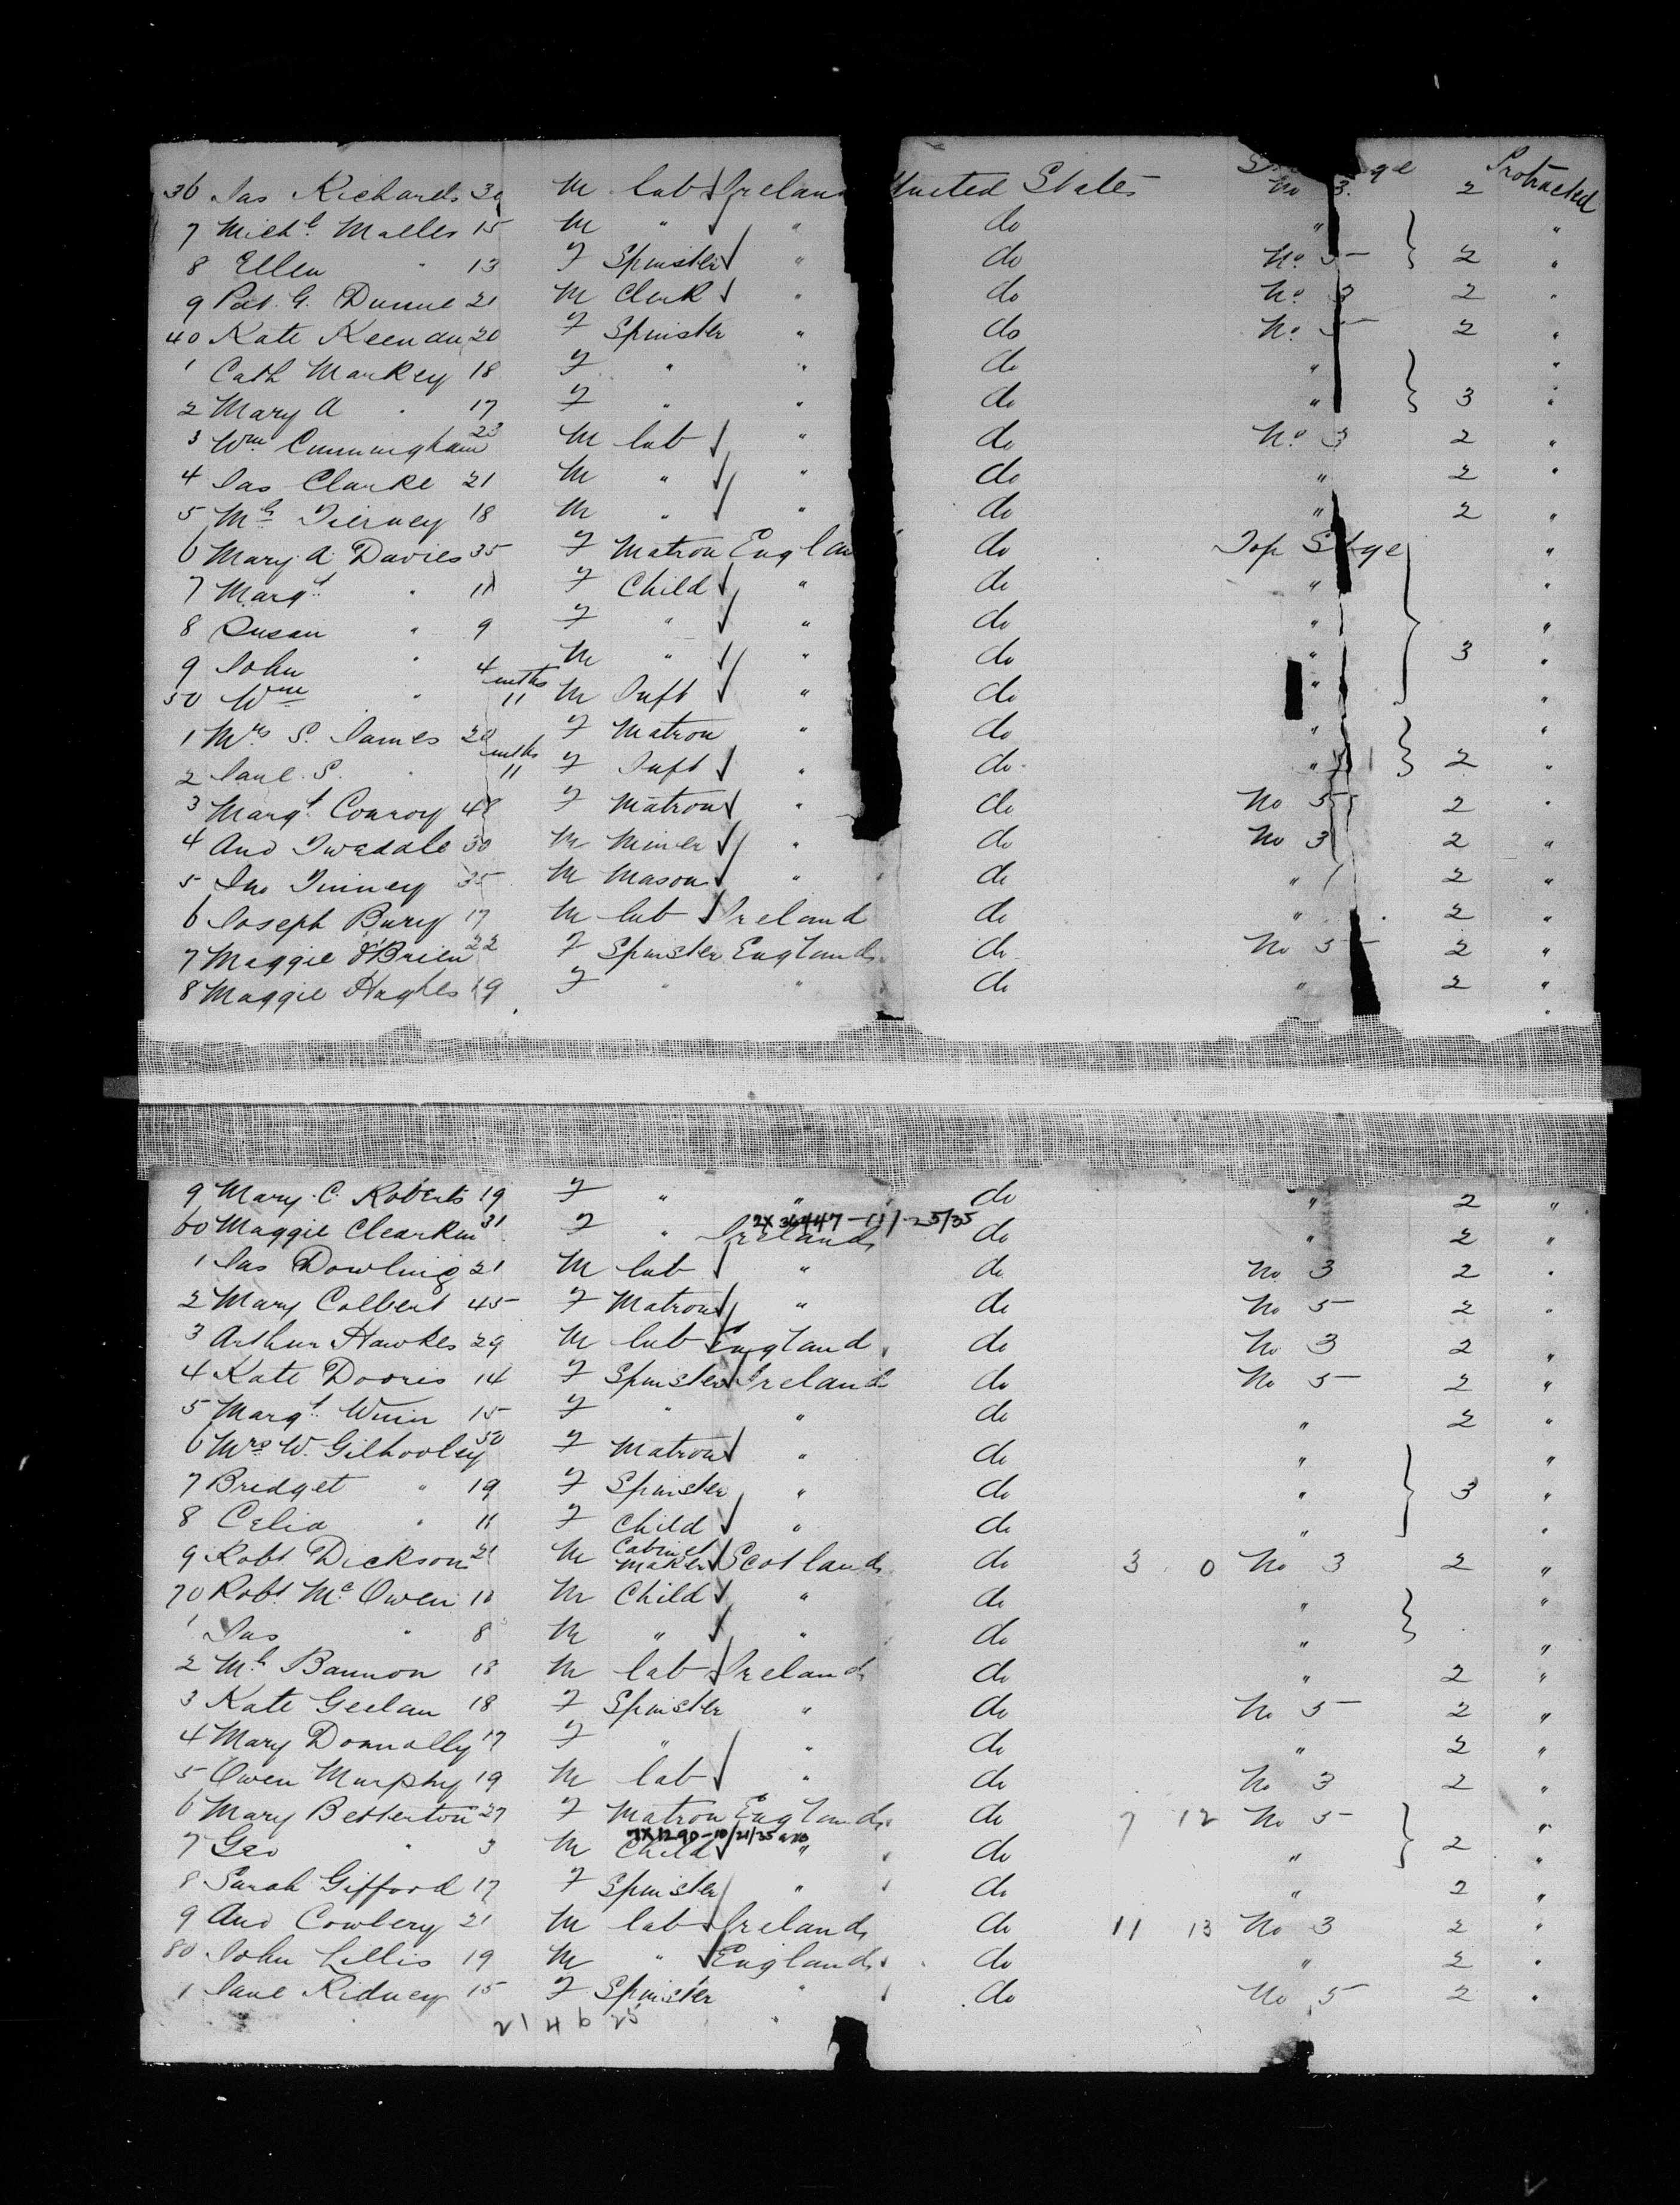 36 Jas Richards 30 M lab Ireland United States No 3. 2 Protracted
7 Michl Malles 15 M " " do " "
8 Ellen " 13 F Spinster " do No 5 2 "
9 Pat. G. Dunne 21 M Clerk " do No 3 2 "
40 Kate Keenan 20 F Spinster " do No 5 2 "
1 Cath Markey 18 F " " do " "
2 Mary A " 17 F " " do " 3 "
3 Wm Cunningham 23 M lab " do No 3 2 "
4 Jas Clarke 21 M " " do " 2 "
5 Ml Tierney 18 M " " do " 2 "
6 Mary A Davies 35 F Matron Englan do Top Stge "
7 Margt " 11 F Child " do " "
8 Susan " 9 F " " do " "
9 John " 4 M " " do " 3 "
50 Wm " 11 mths M Inft " do " "
1 Mrs S. James 20 F Matron " do " "
2 Jane S. " 11 mths F Inft " do " 2 "
3 Margt Conroy 48 F Matron " do No 5 2 "
4 And Twedale 30 M Miner " do No 3 2 "
5 Jno Tinney 35 M Mason " do " 2 "
6 Joseph Bury 17 M lab Ireland do " 2 "
7 Maggie O'Brien 22 F Spinster England do No 5 2 "
8 Maggie Hughes 19 F " " do " 2 "
9 Mary C. Roberts 19 F " " do " 2 "
2X 36447-11/25/35
60 Maggie Clearkin 31 F " Ireland do " 2 "
1 Jas Dowling 21 M lab " do No 3 2 "
2 Mary Colbert 45 F Matron " do No 5 2 "
3 Arthur Hawkes 29 M lab England do No 3 2 "
4 Kate Dooris 14 F Spinster Ireland do No 5 2 "
5 Margt Winn 15 F " " do " 2 "
6 Mrs W. Gilhooley 50 F Matron " do " "
7 Bridget " 19 F Spinster " do " 3 "
8 Celia " 11 F Child " do " "
9 Robt Dickson 21 M Cabinet Maker Scotland do 3 0 No 3 2 "
70 Robt McOwen 10 M Child " do " "
1 Jas " 8 M " " do " "
2 Ml Bannon 18 M lab Ireland do " 2 "
3 Kate Geelan 18 F Spinster " do No 5 2 "
4 Mary Donnolly 17 F " " do " 2 "
5 Owen Murphy 19 M lab " do No 3 2 "
6 Mary Betterton 27 F Matron England do 7 12 No 5 "
7X1290-10/21/35
7 Geo " 3 M Child " do " 2 "
8 Sarah Gifford 17 F Spinster " do " 2 "
9 And Cowbery 21 M lab Ireland do 11 13 No 3 2 "
80 John Lillis 19 M " England do " 2 "
1 Jane Kidney 15 F Spinster " do No 5 2 "
21 4 6 25